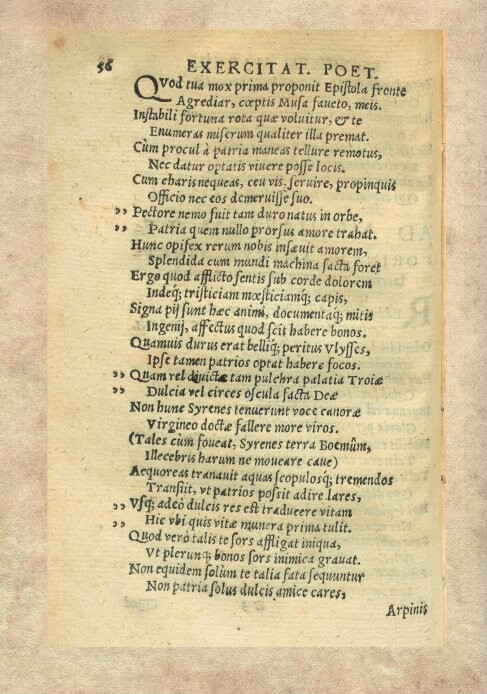 56 EXERCITAT. POET.
QVod tua mox prima proponit Epistola fronte
Agrediar, cœptis Musa faueto, meis.
Instabili fortuna rota quæ voluitur, & te
Enumeras miserum qualiter illa premat.
Cùm procul à patria maneas tellure remotus,
Nec datur optatis viuere posse locis.
Cum charis nequeas, ceu vis, seruire, propinquis
Officio nec eos demeruisse suo.
,, Pectore nemo fuit tam duro natus in orbe,
,, Patria quem nullo prorsus amore trahat.
Hunc opifex rerum nobis inseuit amorem,
Splendida cum mundi machina facta foret
Ergo quod afflicto sentis sub corde dolorem
Indeq; tristiciam mœsticiamq; capis,
Signa pij sunt hæc animi, documentaq; mitis
Ingenij, affectus quod scit habere bonos.
Quamuis durus erat belliq; peritus Vlysses,
Ipse tamen patrios optat habere focos.
,, Quam vel tam pulchra palatia Troiæ
,, Dulcia vel circes oscula facta Deæ
Non hunc Syrenes tenuerunt voce canoræ
Virgineo doctæ fallere more viros.
(Tales cùm foueat, Syrenes terra Boemûm,
Illecebris harum ne moueare caue)
Aequoreas tranauit aquas scopulosq; tremendos
Transiit, vt patrios possit adire lares,
,, Vsq; adeò dulcis res est traducere vitam
,, Hic vbi quis vitæ munera prima tulit.
Quod verò talis te sors affligat iniqua,
Vt plerunq; bonos sors inimica grauat.
Non equidem solùm te talia fata sequuntur
Non patria solus dulcis amice cares,
Arpinis